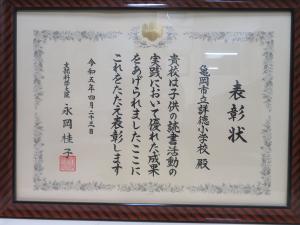 表彰状
亀岡市立詳徳小学校 殿
貴校は子供の読書活動の
実践において優れた成果
をあげられましたここに
これをたたえ表彰します
令和五年四月二十三日
文部科学大臣 永岡桂子